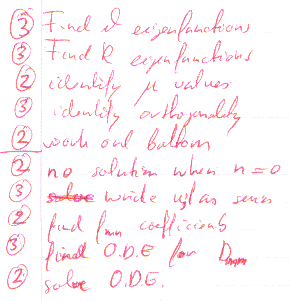 ③ Find ϑ eigenfunctions
③ Find R eigenfunctions
② identify μ values
③ identify orthogonality
② work out bottom
② no solution when n=0
③ write as series
② find fmn coefficients
③ find O.D.E for Dmn
② solve O.D.E.